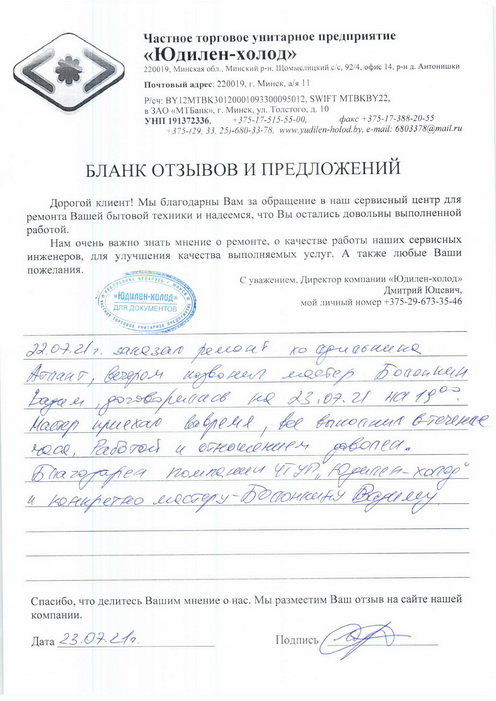 Частное торговое унитарное предприятие
«Юдилен-холод»
220019, Минская обл., Минский р-н, Щомыслицкий с/с, 92/4, офис 14, р-н д. Антонишки
Почтовый адрес: 220019, г. Минск, а/я 11
Р/сч: BY12MTBK30120001093300095012, SWIFT MTBKBY22,
в ЗАО «МТБанк», г. Минск, ул. Толстого, д. 10
УНП 191372336, +375-17-515-55-00, факс +375-17-388-20-55
+375-(29, 33, 25)-680-33-78, www.yudilen-holod.by, e-mail: 6803378@mail.ru
БЛАНК ОТЗЫВОВ И ПРЕДЛОЖЕНИЙ
Дорогой клиент! Мы благодарны Вам за обращение в наш сервисный центр для
ремонта Вашей бытовой техники и надеемся, что Вы остались довольны выполненной
работой.
Нам очень важно знать мнение о ремонте, о качестве работы наших сервисных
инженеров, для улучшения качества выполняемых услуг. А также любые Ваши
пожелания.
С уважением, Директор компании «Юдилен-холод»
Дмитрий Юцевич,
мой личный номер +375-29-673-35-46
«Юдилен-холод»
ДЛЯ ДОКУМЕНТОВ
22.07.21г. заказал ремонт холодильника
Атлант, вечером позвонил мастер Болонкин
Вадим, договорились на 23.07.21 на 19⁰⁰
Мастер приехал вовремя, все выполнил в течение
часа. Работой и отношением доволен.
Благодарен компании ЧТУП „Юдилен-холод"
и конкретно мастеру - Болонкину Вадиму.
Спасибо, что делитесь Вашим мнение о нас. Мы разместим Ваш отзыв на сайте нашей
компании.
Дата 23.07.21г. Подпись